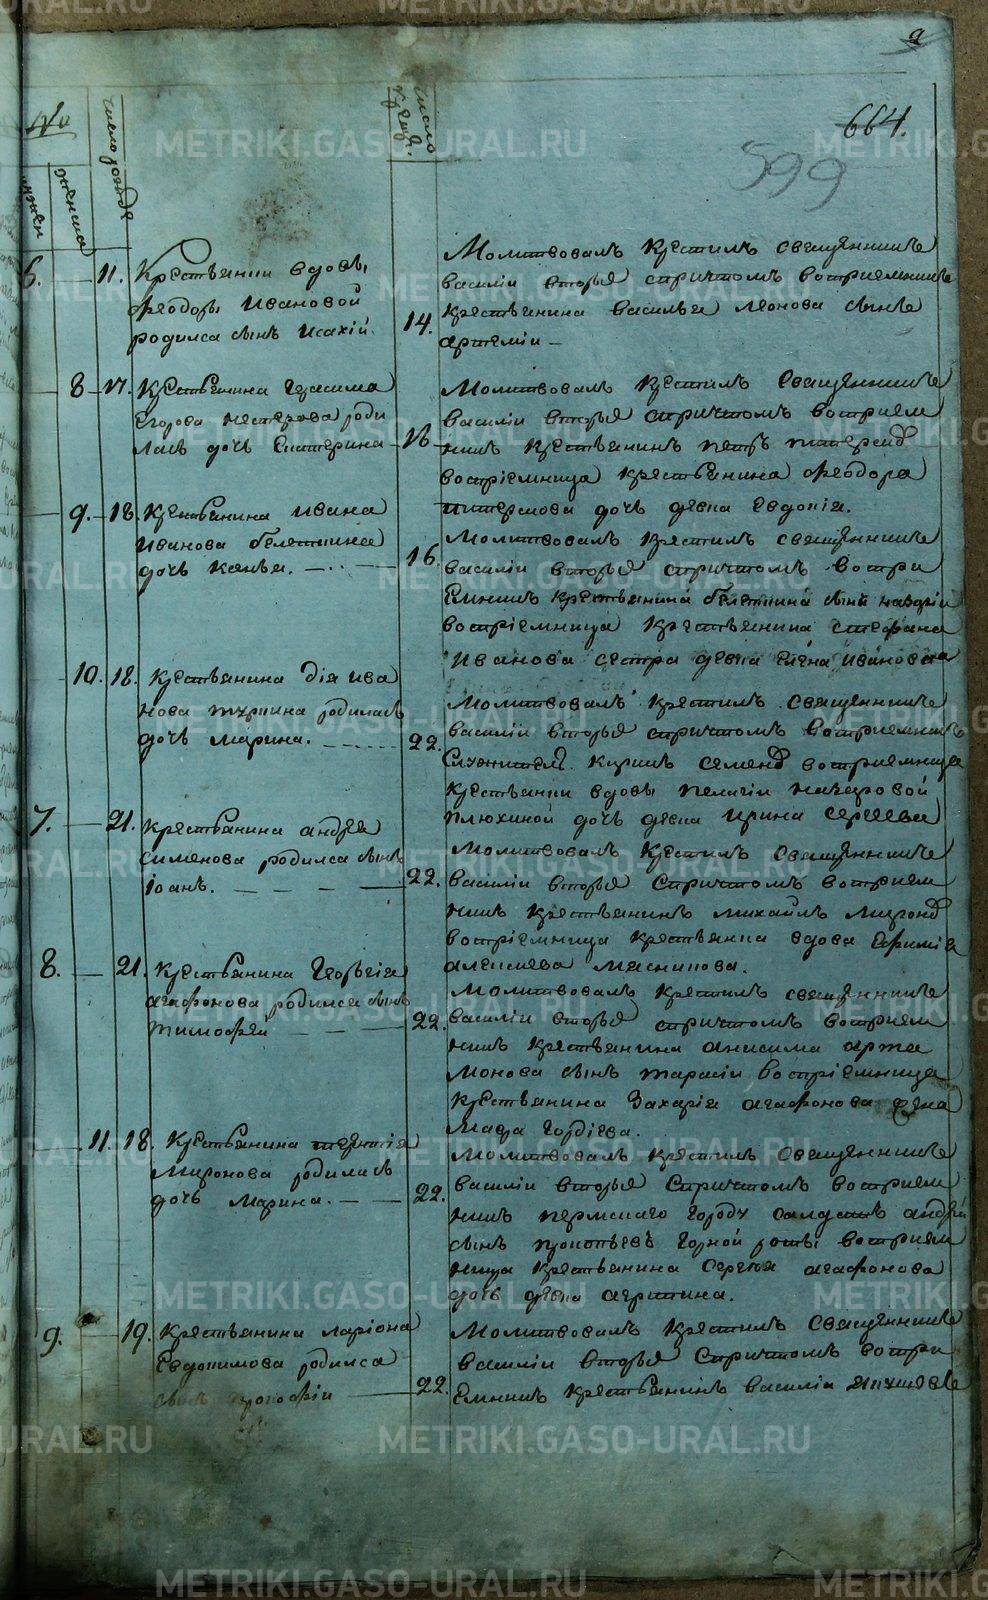 9
664.
599
№
мужен
женска
число рожде
число крещ.
6. 11. Крестьянки вдовы
Феодоры Ивановой
родился сынъ Исакій.
14.
Молитвовалъ крестилъ священникъ
Василіи вторые спричтомъ восприемникъ
Крестьянина Василья Леонова сынъ
Артеміи
8 17. Крестьянина Герасима
Егорова Нестерова роди
лась дочь Екатерина
16
Молитвовалъ крестилъ священникъ
Василіи вторые спричтомъ восприем
никъ Крестьянинъ Петръ
воспріемница Крестьянина Феодора
дочь девка Евдокія.
9. 18. Крестьянина Ивана
Иванова
дочь Ксенья.
16.
Молитвовалъ крестилъ священникъ
Василіи вторые спричтомъ воспри
емникъ крестьянина сынъ Назаріи
воспріемница Крестьянина Стефана
Иванова сестра девка Елена Иванова
10. 18. Крестьянина Дія Ива
нова родилась
дочь Марина.
22.
Молитвовалъ крестилъ священникъ
Василіи вторые спричтомъ восприемникъ
Служитель Семенъ восприемница
Крестьянки вдовы Пелагіи
дочь девка Ирина Сергеева
7. 21. Крестьянина Андреа
Сименова родился сынъ
Іоанъ.
22.
Молитвовалъ Крестилъ Священникъ
Василіи вторые Спричтомъ восприем
никъ Крестьянинъ Михайлъ
воспріемница Крестьянка вдова Ефимія
Алексиева Масникова.
8. 21. Крестьянина Георьгія
Агафонова родился сынъ
Тимофеи
22.
Молитвовалъ крестилъ священникъ
Василіи вторые спричтомъ восприем
никъ Крестьянина Анисима Арта
монова сынъ Тарасіи воспріемница
Крестьянина Захаріи Агафонова жена
Мавра Гордіева.
11. 18. Крестьянина
Миронова родилась
дочь Марина.
22.
Молитвовалъ крестилъ Священникъ
Василіи вторые Спричтомъ восприем
никъ Пермскаго Городу салдатъ Андрей
сынъ Прокопьевъ Горной роты восприем
ница Крестьянина Сергья Агафонова
дочь девка Агрипина.
9. 19. Крестьянина Ларіона
Евдокимова родился
сынъ
22.
Молитвовалъ Крестилъ Священникъ
Василіи вторые Спричтомъ воспри
емникъ Крестьянинъ Василіи
METRIKI.GASO-URAL.RU